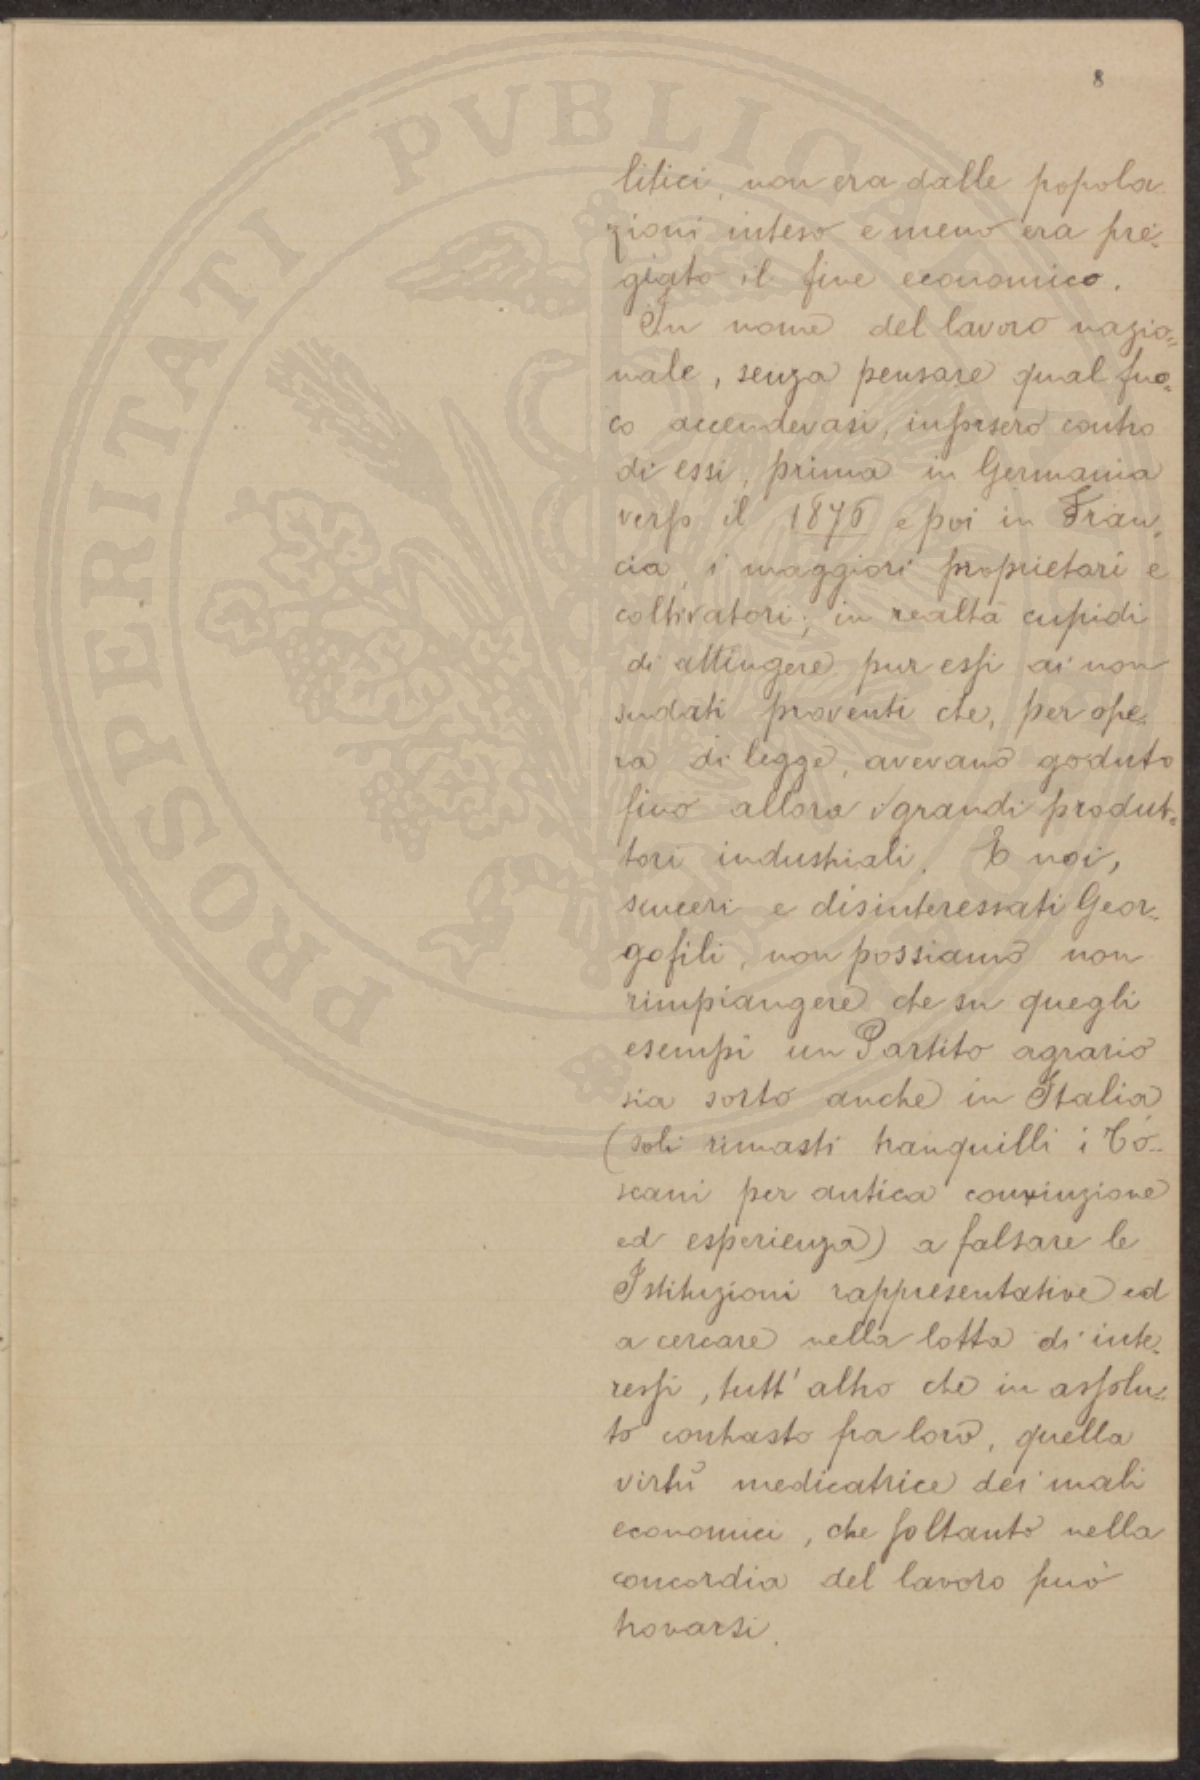 8
litici, non era dalle popola-
zioni inteso e meno era pre-
giato il fine economico.
In nome del lavoro nazio-
nale, senza pensare qual fuo-
co accendevasi, insorsero contro
di essi, prima in Germania
verso il 1876 e poi in Fran-
cia, i maggiori proprietari e
coltivatori; in realtà cupidi
di attingere pur essi ai non
sudati proventi che, per ope-
ra di legge, avevano goduto
fino allora i grandi produt-
tori industriali. E noi,
sinceri e disinteressati Geor-
gofili, non possiamo non
rimpiangere che su quegli
esempi un Partito agrario
sia sorto anche in Italia
(soli rimasti tranquilli i To-
scani per antica convinzione
ed esperienza) a falsare le
Istituzioni rappresentative ed
a cercare nella lotta di inte-
ressi, tutt'altro che in assolu-
to contrasto fra loro, quella
virtù medicatrice dei mali
economici, che soltanto nella
concordia del lavoro può
trovarsi.
PROSPERITATI PVBLICAE